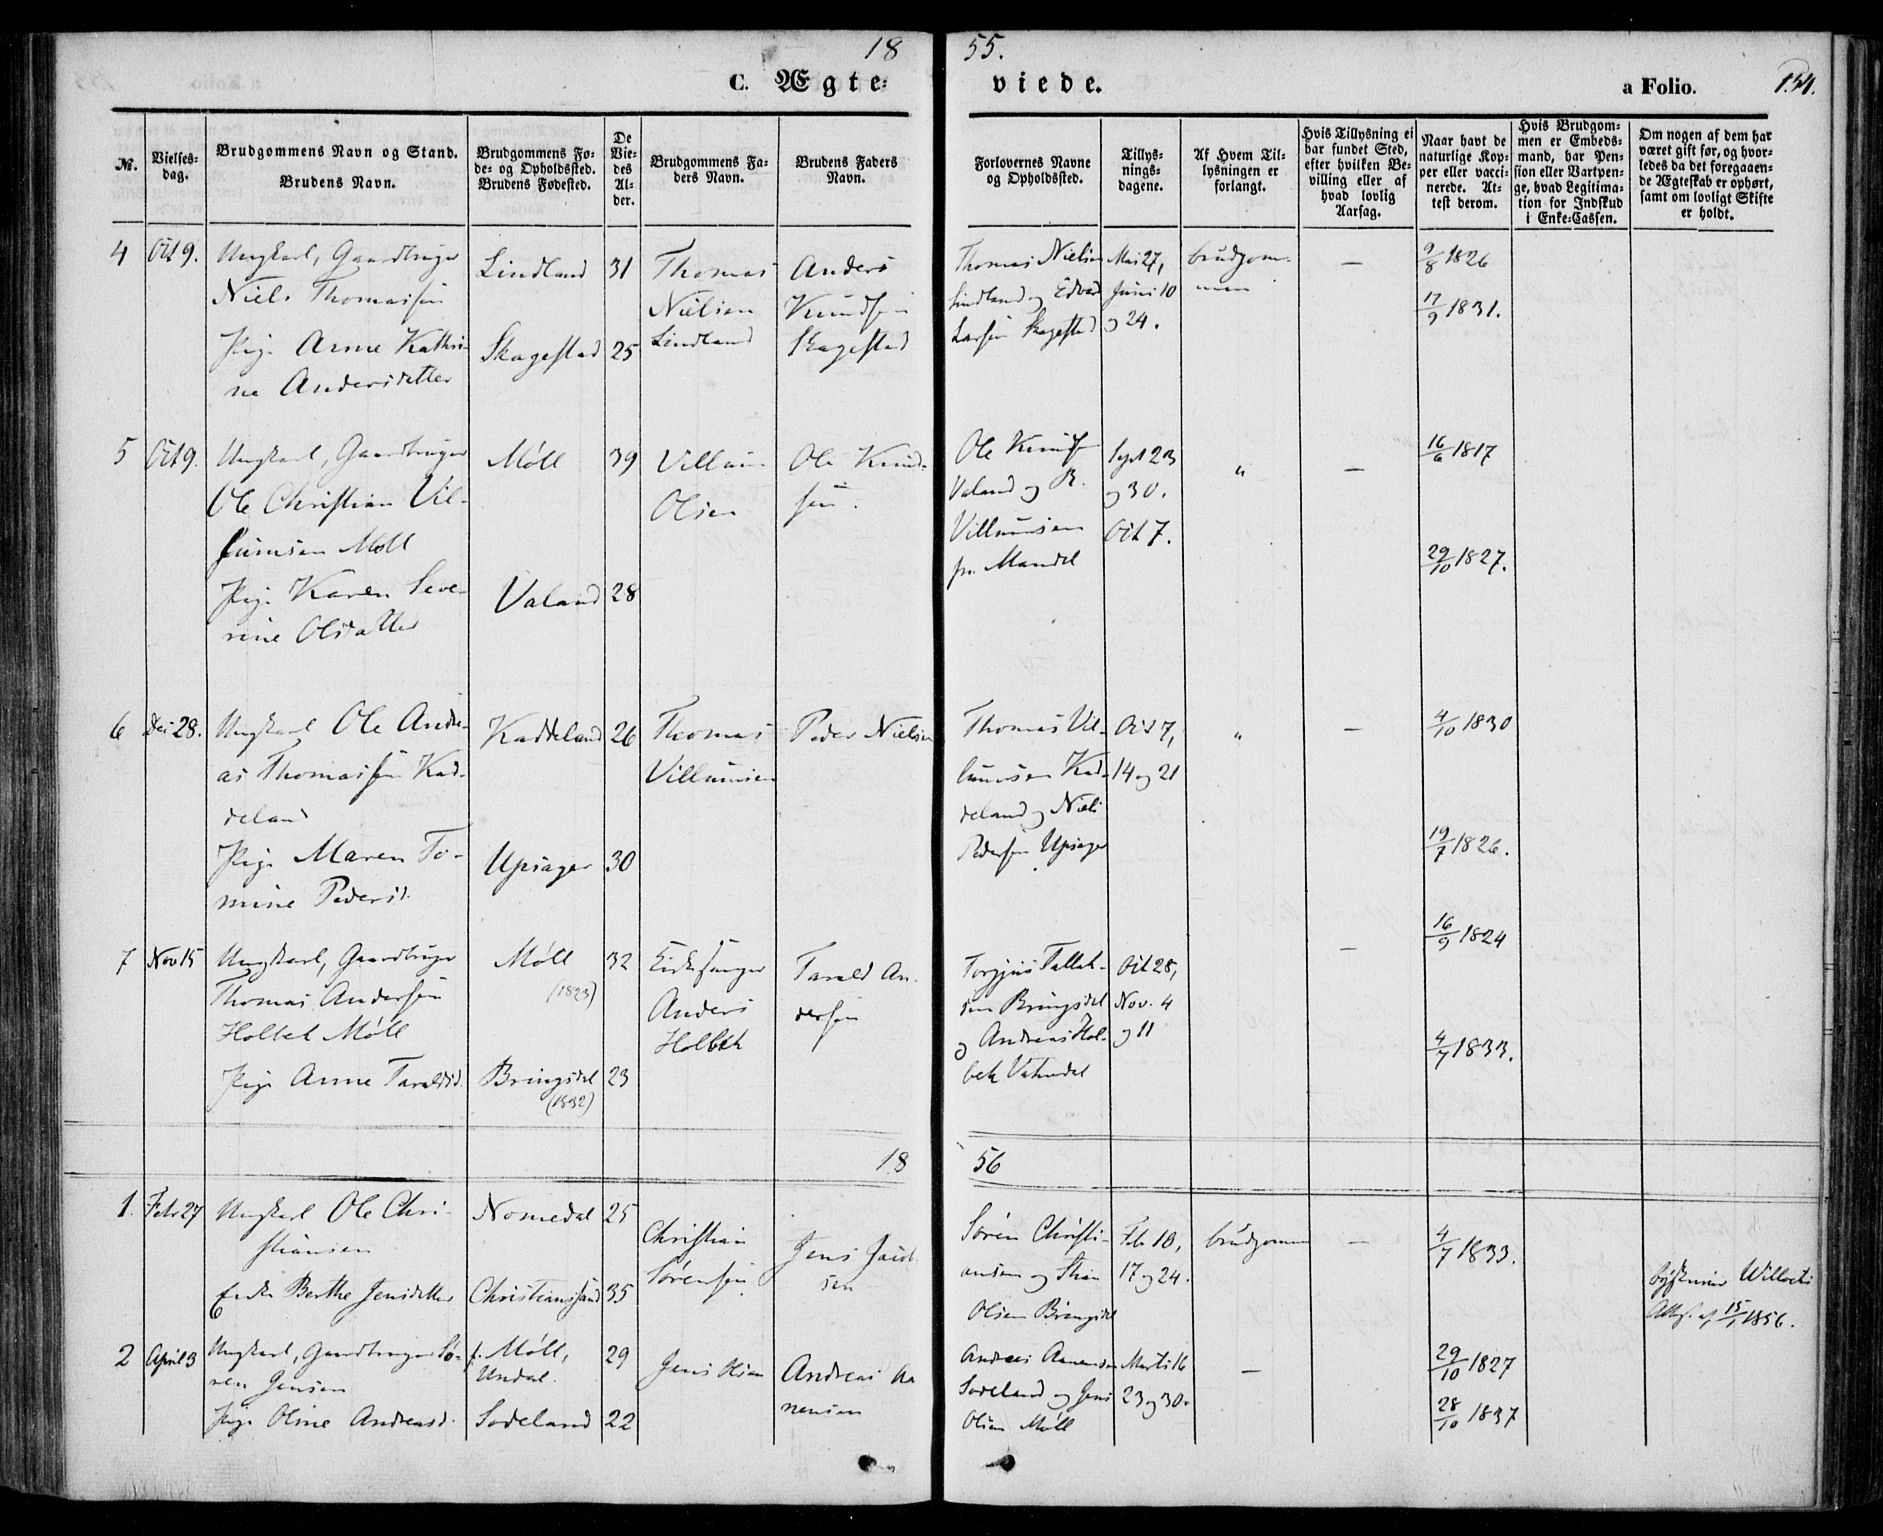 18 55.
C. Ægte- viede. a Folio. 154.
№.
Vielses-
dag.
Brudgommens Navn og Stand.
Brudens Navn.
Brudgommens Fø-
de- og Opholdssted.
Brudens Fødested.
De
Vie-
des
Al-
der.
Brudgommens Fa-
ders Navn.
Brudens Faders
Navn.
Forlovernes Navne
og Opholdssted.
Tillys-
nings-
dagene.
Af Hvem Til-
lysningen er
forlangt.
Hvis Tillysning ei
har fundet Sted,
efter hvilken Be-
villing eller af
hvad lovlig
Aarsag.
Naar havt de
naturlige Kop-
per eller vacci-
nerede. At-
test derom.
Hvis Brudgom-
men er Embeds-
mand, har Pen-
sion eller Vartpen-
ge, hvad Legitima-
tion for Indskud
i Enke-Cassen.
Om nogen af dem har
været gift før, og hvor-
ledes da det foregaaen-
de Ægteskab er ophørt,
samt om lovligt Skifte
er holdt.
4
Oct 9.
Ungkarl, Gaardbruger
Niels Thomassen
Pige Anne Kathri-
ne Andersdatter
Lindland
Skagestad
31
25
Thomas
Nielsen
Lindland
Anders
Knudsen
Skagestad
Thomas Nielsen
Lindland og Edvard
Larsen Skagestad
Mai 27,
Juni 10
og 24.
brudgom-
men
—
9/8 1826
17/9 1831.
5
Oct 9.
Ungkarl, Gaardbruger
Ole Christian Vil-
lumsen Møll
Pige Karen Seve-
rine Olsdatter
Møll
Valand
39
28
Villum
Olsen
Ole Knud-
sen.
Ole Knuds
Valand og R.
Villumsen
fr. Mandal
Sept 23
og 30.
Oct 7.
"
—
16/6 1817
29/10 1827.
6
Dec 28.
Ungkarl Ole Andre-
as Thomassen Kad-
deland
Pige Maren To-
mine Pedersd.
Kaddeland
Upsager
26
30
Thomas
Villumsen
Peder Nielsen
Thomas Vil-
lumsen Kad-
deland og Niels
Pedersen Upsager
Oct 7,
14 og 21
"
—
4/10 1830
19/7 1826.
7
Nov 15
Ungkarl, Gaardbruger
Thomas Andersen
Holbek Møll
Pige Anne Taraldsd.
Møll
(1823)
Bringsdal
(1832)
32
23
Kirkesanger
Anders
Holbek
Tarald An-
dersen
Torgjus Tallak-
sen Bringsdal
og Andreas Hol-
bek Vatnedal
Oct 28,
Nov. 4
og 11
—
16/9 1824
4/7 1833.
18 56
1.
Febr 27
Ungkarl Ole Chri-
stiansen
Enke Berthe Jensdatter
Nomedal
Christianssand
25
35
Christian
Sørensen
Jens Jacob-
sen
Søren Christi-
ansen og Stian
Olsen Bringsdal
Feb 10,
17 og 24.
brudgommen
—
4/7 1833.
Willochs
Attest af 15/1 1856.
2
April 3
Ungkarl, Gaardbruger Sø-
ren Jensen
Pige Oline Andreasd.
f. Møll,
Undal.
Sodeland
29
22
Jens Olsen
Andreas Aa-
nensen
Andreas Aanensen
Sodeland og Jens
Olsen Møll
Marts 16
23 og 30.
—
29/10 1827
28/10 1837